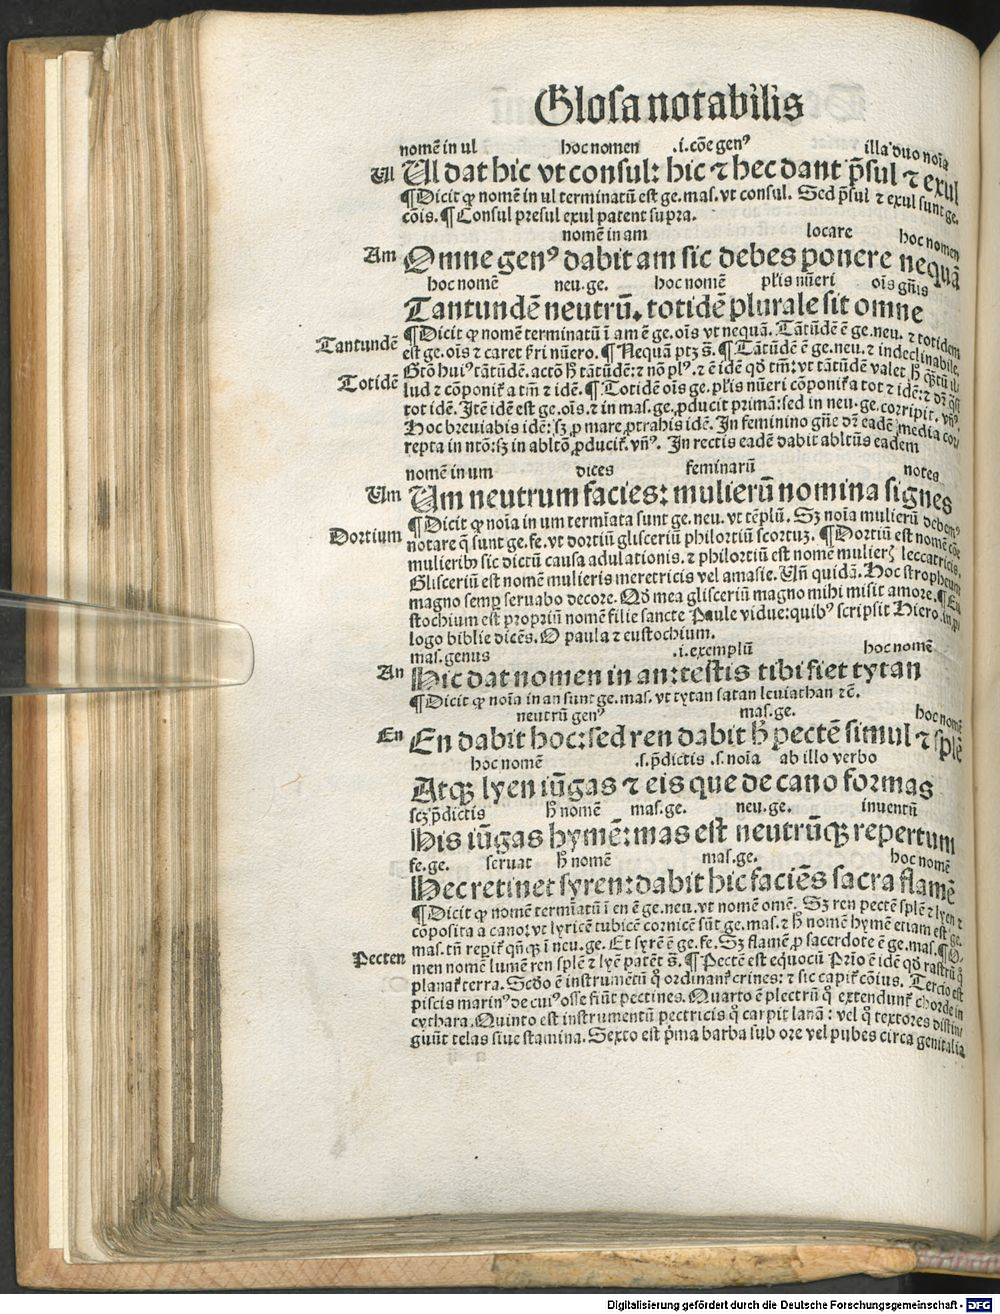 Glosa notabilis
nomē in ul hoc nomen .i. cōe genꝰ illa duo noīa
Ul Ul dat hic vt consul: hic ⁊ hec dant p̄sul ⁊ exul
¶Dicit ꝙ nomē in ul terminatū est ge. mas. vt consul. Sed p̄sul ⁊ exul sunt ge.
cōis. ¶ Consul presul exul patent supra.
nomē in am locare hoc nomen
Am Omne genꝰ dabit am sic debes ponere nequā
hoc nomē neu. ge. hoc nomē pl̄is nūeri oīs gn̄is
Tantundē neutrū. totidē plurale sit omne
¶Dicit ꝙ nomē terminatū ī am ē ge. oīs vt nequā. Tātūdē ē ge. neu. ⁊ totidem
Tantundē est ge. oīs ⁊ caret ẜri nūero. ¶ Nequā ptꝫ s̄. ¶ Tātūdē ē ge. neu. ⁊ indeclinabile.
Totidē lud ⁊ cōponiť a tm̄ ⁊ idē. ¶ Totidē oīs ge. pl̄is nūeri cōponiť a tot ⁊ idē:
tot idē. Itē idē est ge. oīs. ⁊ in mas. ge. ꝓducit primā: sed in neu. ge. corripit. vn̄ꝰ.
Hoc breuiabis idē: sꝫ ꝑ mare ꝓtrahis idē. In feminino gn̄e dꝛ eadē media cor/
repta in ntō: sꝫ in abltō ꝓduciť. vn̄ꝰ. In rectis eadē dabit abltūs eadem
nomē in um dices feminarū notes
Um Um neutrum facies: mulierū nomina signes
¶Dicit ꝙ noīa in um termīata sunt ge. neu. vt tēplū. Sꝫ noīa mulierū debemꝰ
Dortium notare ꝙ sunt ge. fe. vt dortiū glisceriū philortiū scortuꝫ. ¶Dortiū est nomē cōe
mulieribꝰ sic dictū causa adulationis. ⁊ philortiū est nomē mulieꝝ leccatricis.
Glisceriū est nomē mulieris meretricis vel amasie. Un̄ quidā. Hoc stropheum
magno semꝑ seruabo decore. Qd̄ mea glisceriū magno mihi misit amore. ¶ Eu
stochium est propriū nomē filie sancte Paule vidue: quibꝰ scripsit Hiero. in ꝓ
logo biblie dicēs. O paula ⁊ eustochium.
mas. genus .i. exemplū hoc nomē
An Hic dat nomen in an: testis tibi fiet tytan
¶Dicit ꝙ noīa in an sunt ge. mas. vt tytan satan leuiathan ⁊c̄.
neutrū genꝰ mas. ge. hoc nomē
En En dabit hoc: sed ren dabit h̄ pectē simul ⁊ splē
hoc nomē .s. p̄dictis .s. noīa ab illo verbo
Atqꝫ lyen iūgas ⁊ eis que de cano formas
scꝫ p̄dictis h̄ nomē mas. ge. neu. ge. inuentū
His iūgas hymē: mas est neutrūqꝫ repertum
fe. ge. seruat h̄ nomē mas. ge. hoc nomē
Hec retinet syren: dabit hic faciēs sacra flamē
¶Dicit ꝙ nomē termīatū ī en ē ge. neu. vt nomē omē. Sꝫ ren pectē splē ⁊ lyen ⁊
cōposita a cano: vt lyricē tubicē cornicē sūt ge. mas. ⁊ h̄ nomē hymē etiam est ge.
mas. tn̄ reꝑiť qn̄qꝫ ī neu. ge. Et syrē ē ge. fe. Sꝫ flamē ꝓ sacerdote ē ge. mas. ¶O/
Pecten men nomē lumē ren splē ⁊ lyē patēt s̄. ¶ Pectē est equocū Prīo ē idē qd̄ rastrū q̄
planať terra. Scd̄o ē instrumētū q̄ ordinanť crines: ⁊ sic capiť cōius. Tercio est
piscis marinꝰ de cuiꝰ osse fiūt pectines. Quarto ē plectrū q̄ extendunť chorde in
cythara. Quinto est instrumentū pectricis q̄ carpit lanā: vel q̄ textores distin/
guūt telas siue stamina. Sexto est p̄ma barba sub ore vel pubes circa genitalia
Digitalisierung gefördert durch die Deutsche Forschungsgemeinschaft - DFG